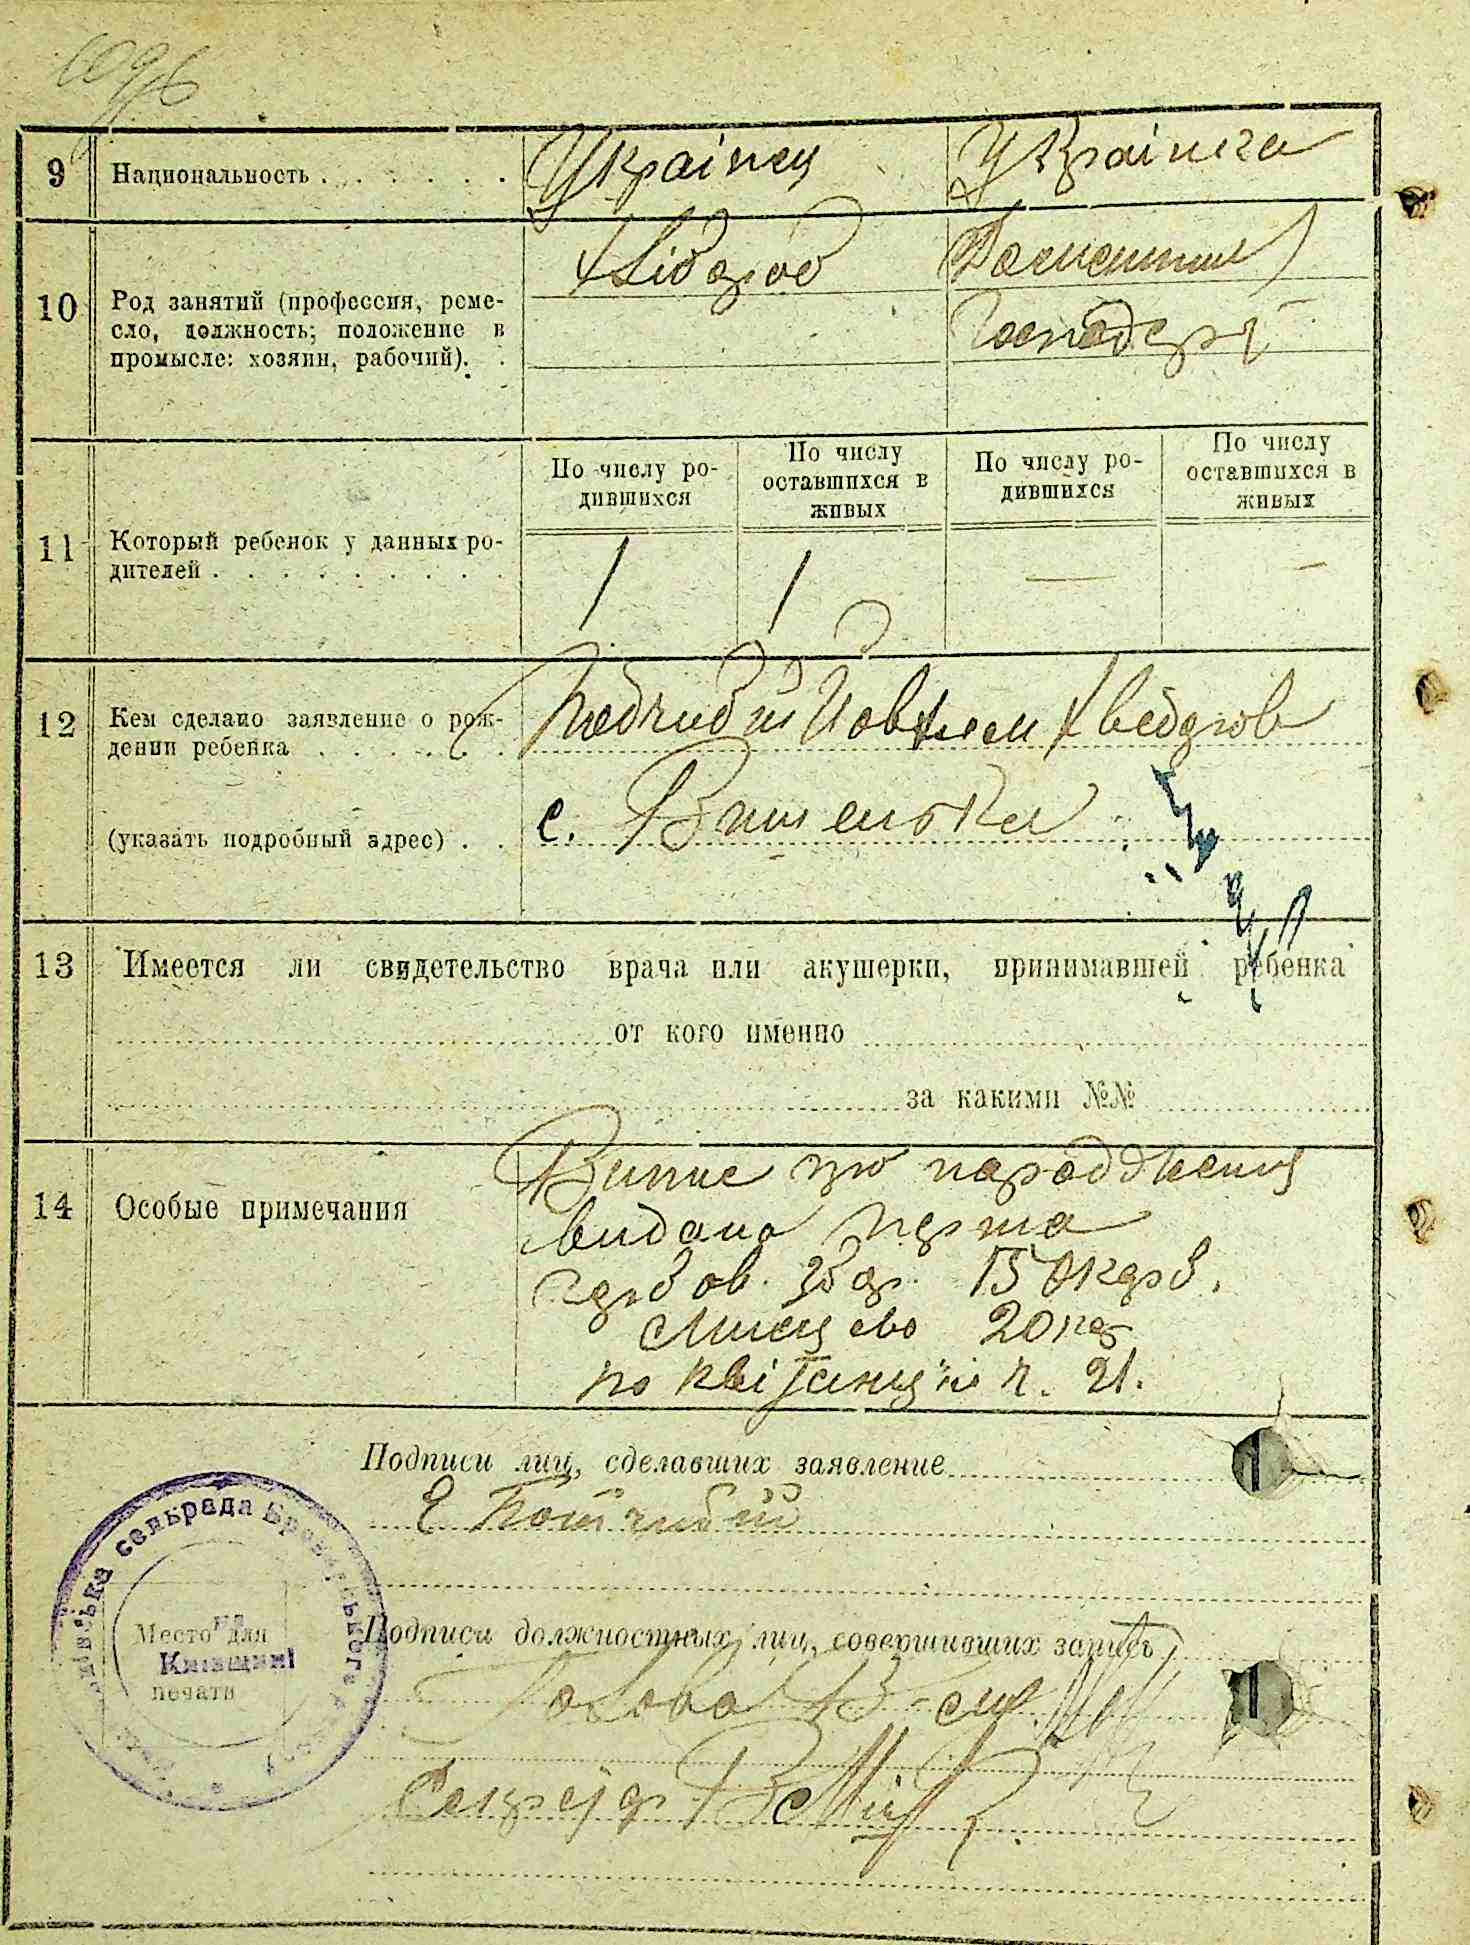 9 Национальность . . . . . . Українец Українка
10 Род занятий (профессия, реме-
сло, должность; положение в
промысле: хозяин, рабочий). .
Хлібороб
Домашнє
господар
11 Который ребенок у данных ро-
дителей . . . . . . . . .
По числу ро-
дившихся
По числу
оставшихся в
живых
По числу ро-
дившихся
По числу
оставшихся в
живых
1 1 — —
12 Кем сделано заявление о рож-
дении ребенка . . . . . .
(указать подробный адрес) . .
с. Вишеньки
13 Имеется ли свидетельство врача или акушерки, принимавшей ребенка
от кого именно
за какими №№
14 Особые примечания
Випис про народження
видано перша
герб ов. збор. 15 окрв.
Місцево 20 кар
по квітанції ч. 21.
Подписи лиц, сделавших заявление
Место для
печати
сельрада Броварського
на
Київщині
Подписи должностных лиц, совершивших запись
Голова В-с
Секретар